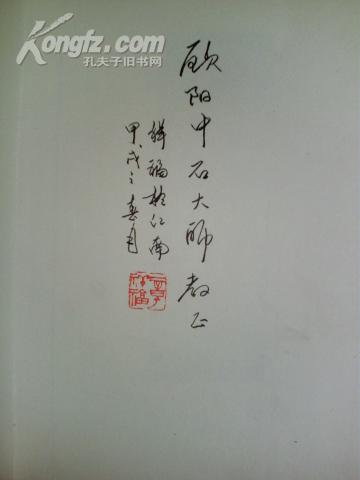 Kongfz.com
孔夫子旧书网
欧阳中石大师教正
福于江南
甲戌之春月